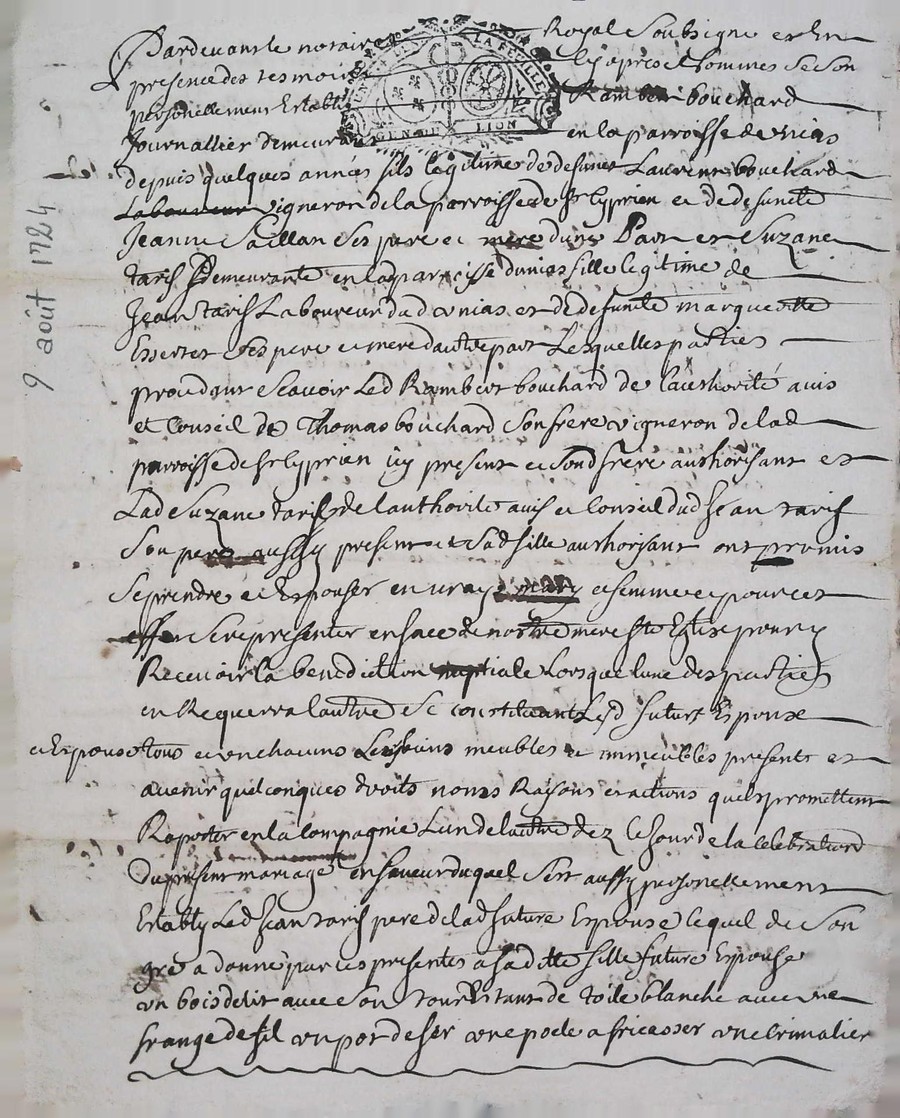 Pardevant le notaire Royal Soubsigne et En
presence des tesmoins cy apres nommes Se Son
personellement Establi Rambert bouchard
Journallier demeurant en la parroisse de unias
depuis quelques annés fils legitime de defunct Laurent bouchard
Laboureur vigneron de la parroisse de St Cyprien et de defuncte
Jeanne Saillan Ses pere et mere dune Part et Suzane
tarif Demeurante en lad parroisse dunias fille legitime de
Jean tarif Laboureur dud unias et de defuncte marguette
Essertet Ses pere et mere dautre part Lesquelles parties
procedant Scavoir Led Rambert bouchard de lauthorité avis
et Conseil de Thomas bouchard Son frere vigneron de lad
parroisse de St Cyprien icy present et Sond frere authorisant et
Lad Suzane tarif de lauthorité avis et Conseil dud Jean tarif
Son pere aussy present et Sad fille authorisant ont promis
Se prendre et Espouser en vray mary et femme et pour cet
effet Se representer en face de nostre mere Ste Eglise pour y
Recevoir la benediction nuptiale Lorsque lune des parties
en Requerra lautre Se constituant Lesd futurs Espoux
et Espouse tous et un chacuns Leurs biens meubles et immeubles presents et
avenir quelconques droits noms Raisons et actions quils promettent
Raporter en la Compagnie Lun de lautre dez le Jour de la celebration
du present mariage en faveur duquel Sest aussy personellement
Establi Led Jean tarif pere de lad future Espouse lequel de Son
gré a donné par ces presentes a Sa ditte fille future Espouse
un bois de lit avec Son tour Estant de toile blanche avec une
frange de fil un pot de fer une poele a fricasser une Crimalier
LA FEUILLE
GEN DE LION
9 août 1724